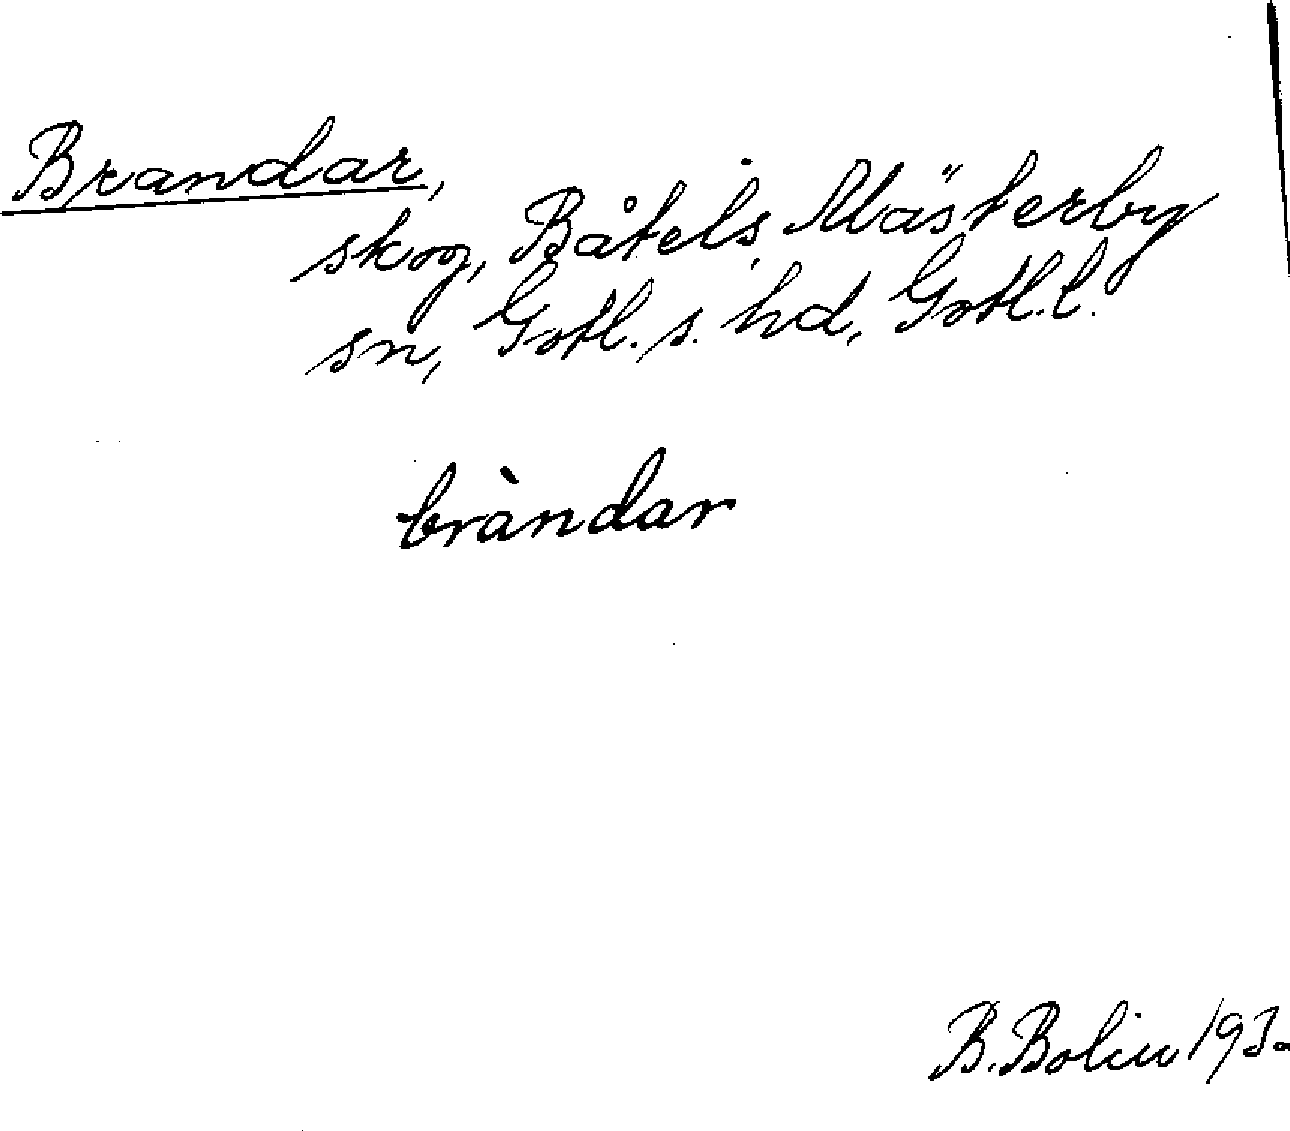 Brandar,
skog, Båtels, Mästerby
sn, Gotl. s. hd, Gotl. l.
bràndar
B. Bolin